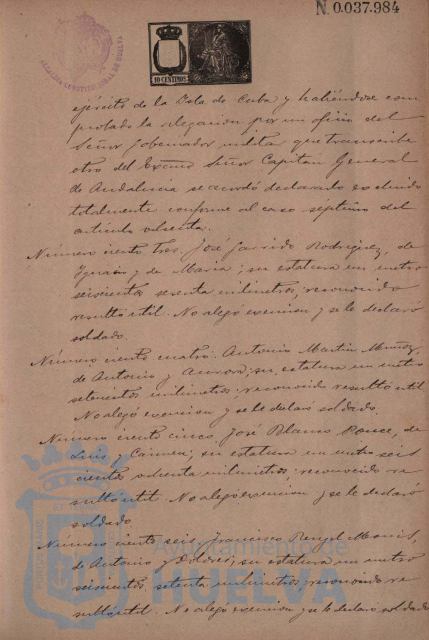 N. 0.037.984
ALCALDIA CONSTITUCIONAL DE HUELVA
10 CENTIMOS
ejército de la Isla de Cuba y habiéndose com
probado la alegacion por un oficio del
Señor Gobernador militar que transcribe
otro del Excmo Señor Capitan General
de Andalucia se acordó declararlo excluido
totalmente conforme al caso séptimo del
artículo ochenta.
Número ciento tres. José Garrido Rodriguez, de
Ignacio y de Maria; su estatura un metro
seiscientos sesenta milimetros; reconocido
resultó útil. No alegó exencion y se le declaró
soldado.
Número ciento cuatro. Antonio Martin Muñoz,
de Antonio y Aurora; su estatura un metro
setecientos milimetros; reconocido resultó útil
No alegó exencion y se le declaró soldado.
Número ciento cinco. José Blanco Ponce, de
Luis y Cármen; su estatura un metro seis
cientos ochenta milimetros; reconocido re
sultó útil. No alegó exención y se le declaró
soldado.
Número ciento seis. Francisco Rengel
de Antonio y Dolores; su estatura un metro
seiscientos setenta milimetros; reconocido re
sultó útil. No alegó exencion y se le declaró soldado
Ayuntamiento de
HUELVA